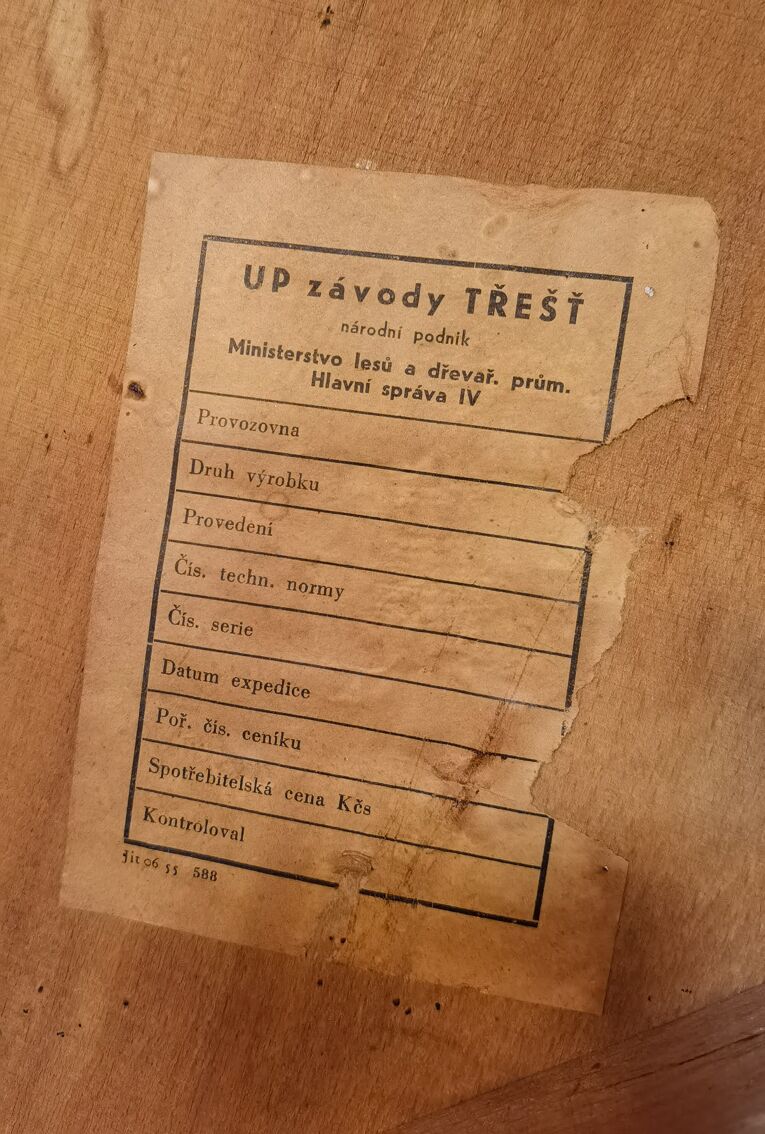 UP závody TŘEŠŤ
národní podnik
Ministerstvo lesů a dřevař. prům.
Hlavní správa IV
Provozovna
Druh výrobku
Provedení
Čís. techn. normy
Čís. serie
Datum expedice
Poř. čís. ceníku
Spotřebitelská cena Kčs
Kontroloval
Jit 06 55 588